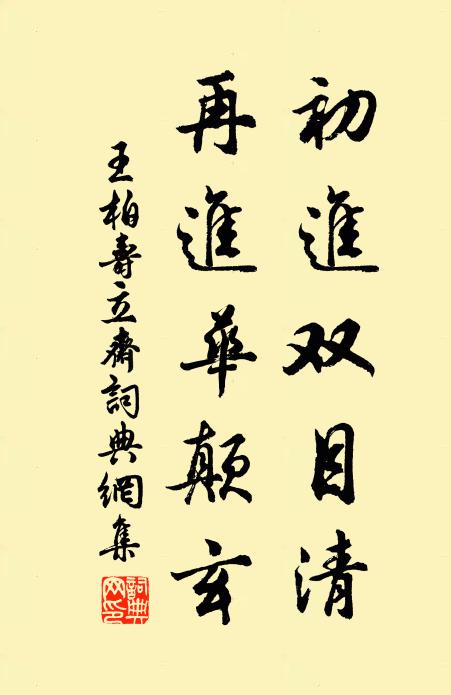 初進双目清
再進華顛玄
王柏壽立齋詞典網集
詞典
网印